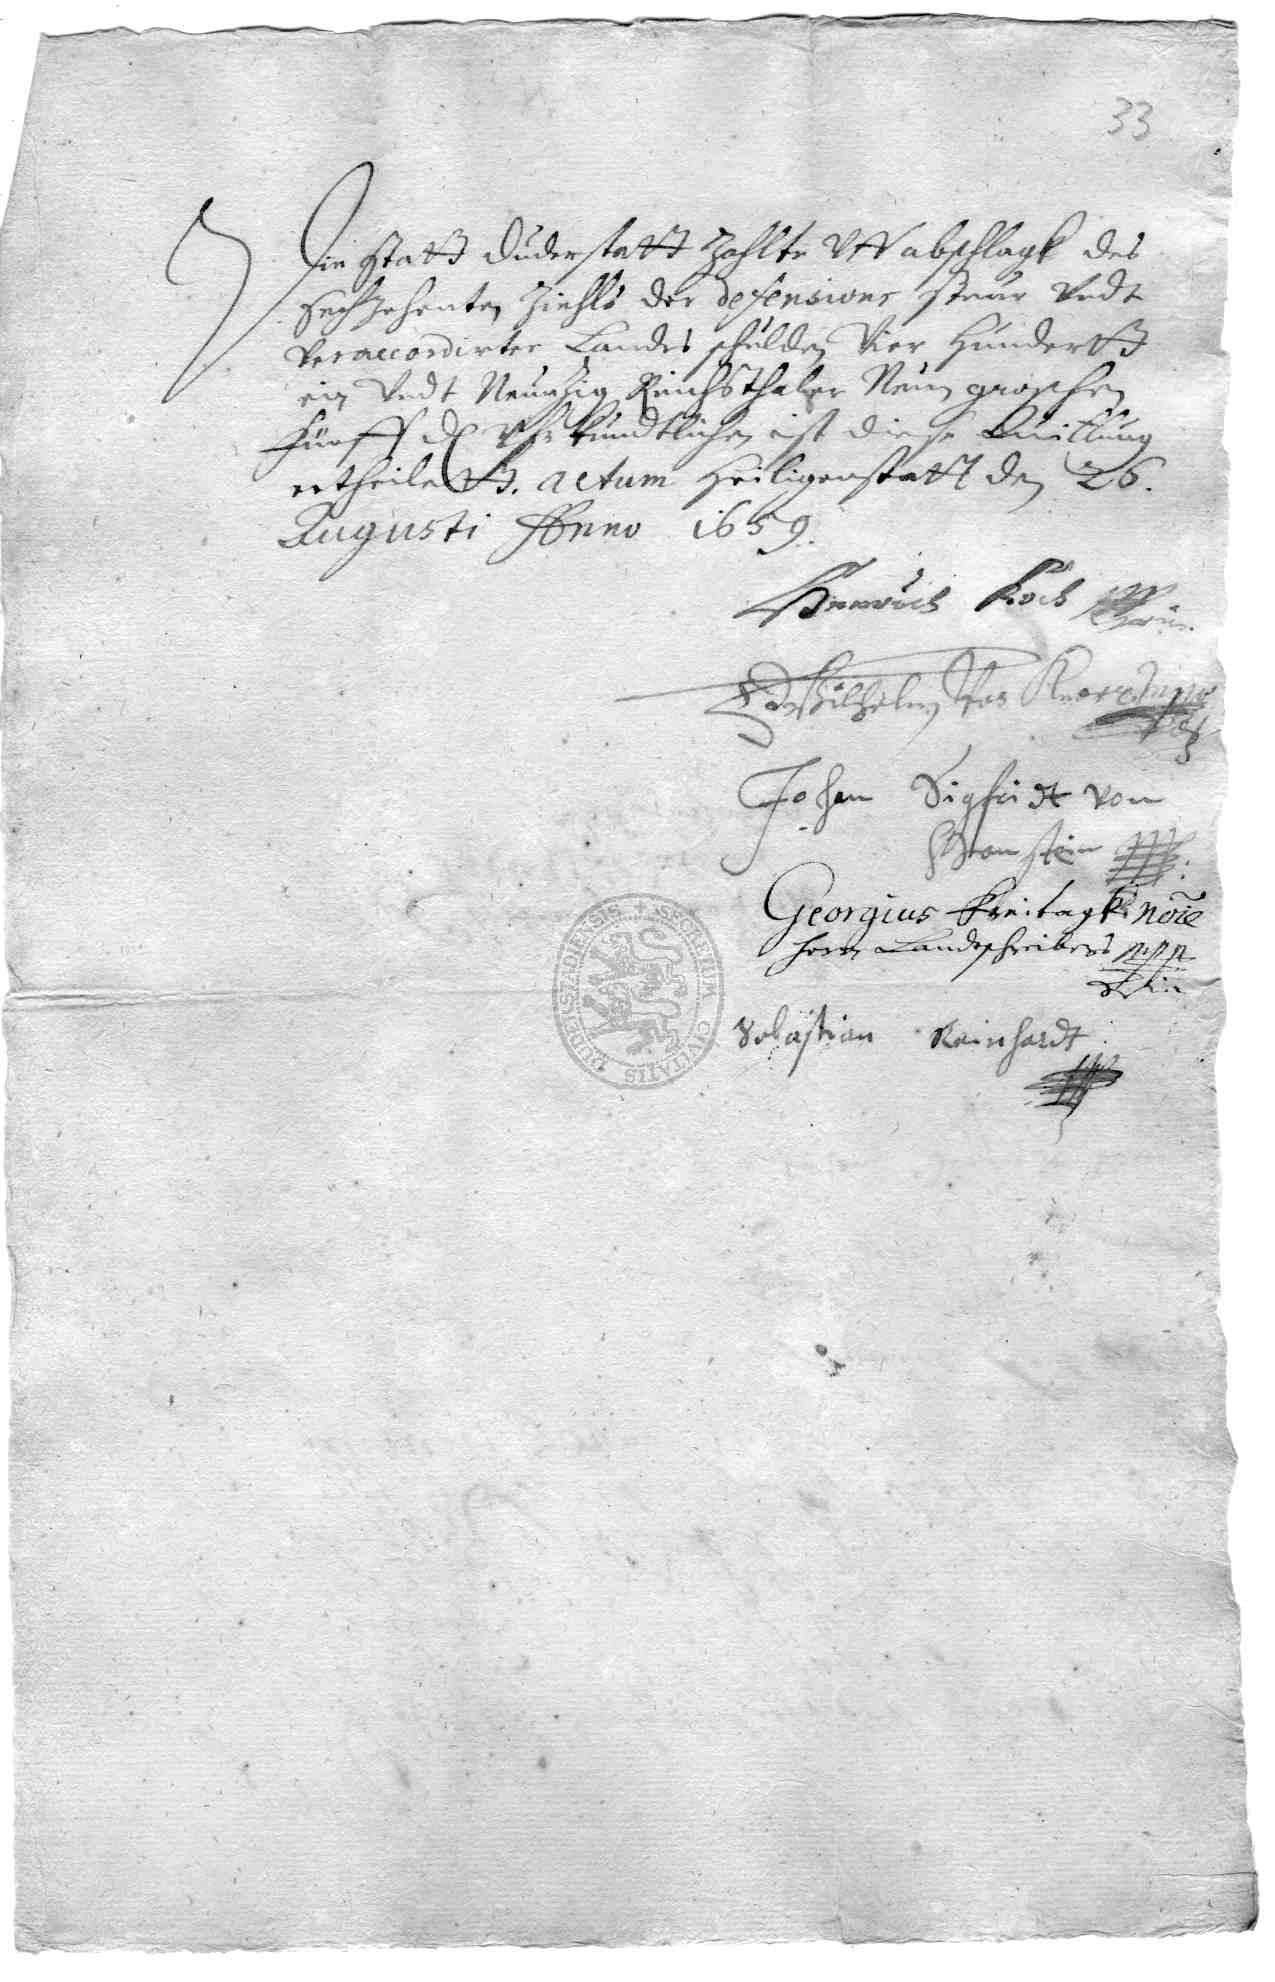 33
Die Statt Duderstatt zahlte Uff abschlagk des
Sechzehenten Ziehls der defensions steur Undt
veraccordirter Landes schulden Vier Hundertt
ein Undt Neunzig Reichsthaler Neun groschen
fünff d Uhrkundtlichen ist diese Quittung
ertheilett. actum Heiligenstatt den 26.
Augusti Anno 1659.
Henrich Koch
Wilhelm Von Knorr
Johan Sigfridt von
Hanstein
Georgius Freitagk noie
herrn Landschreibers mpp
Sebastian Reinhardt
SECRETUM CIVITATIS DUDERSTADIENSIS